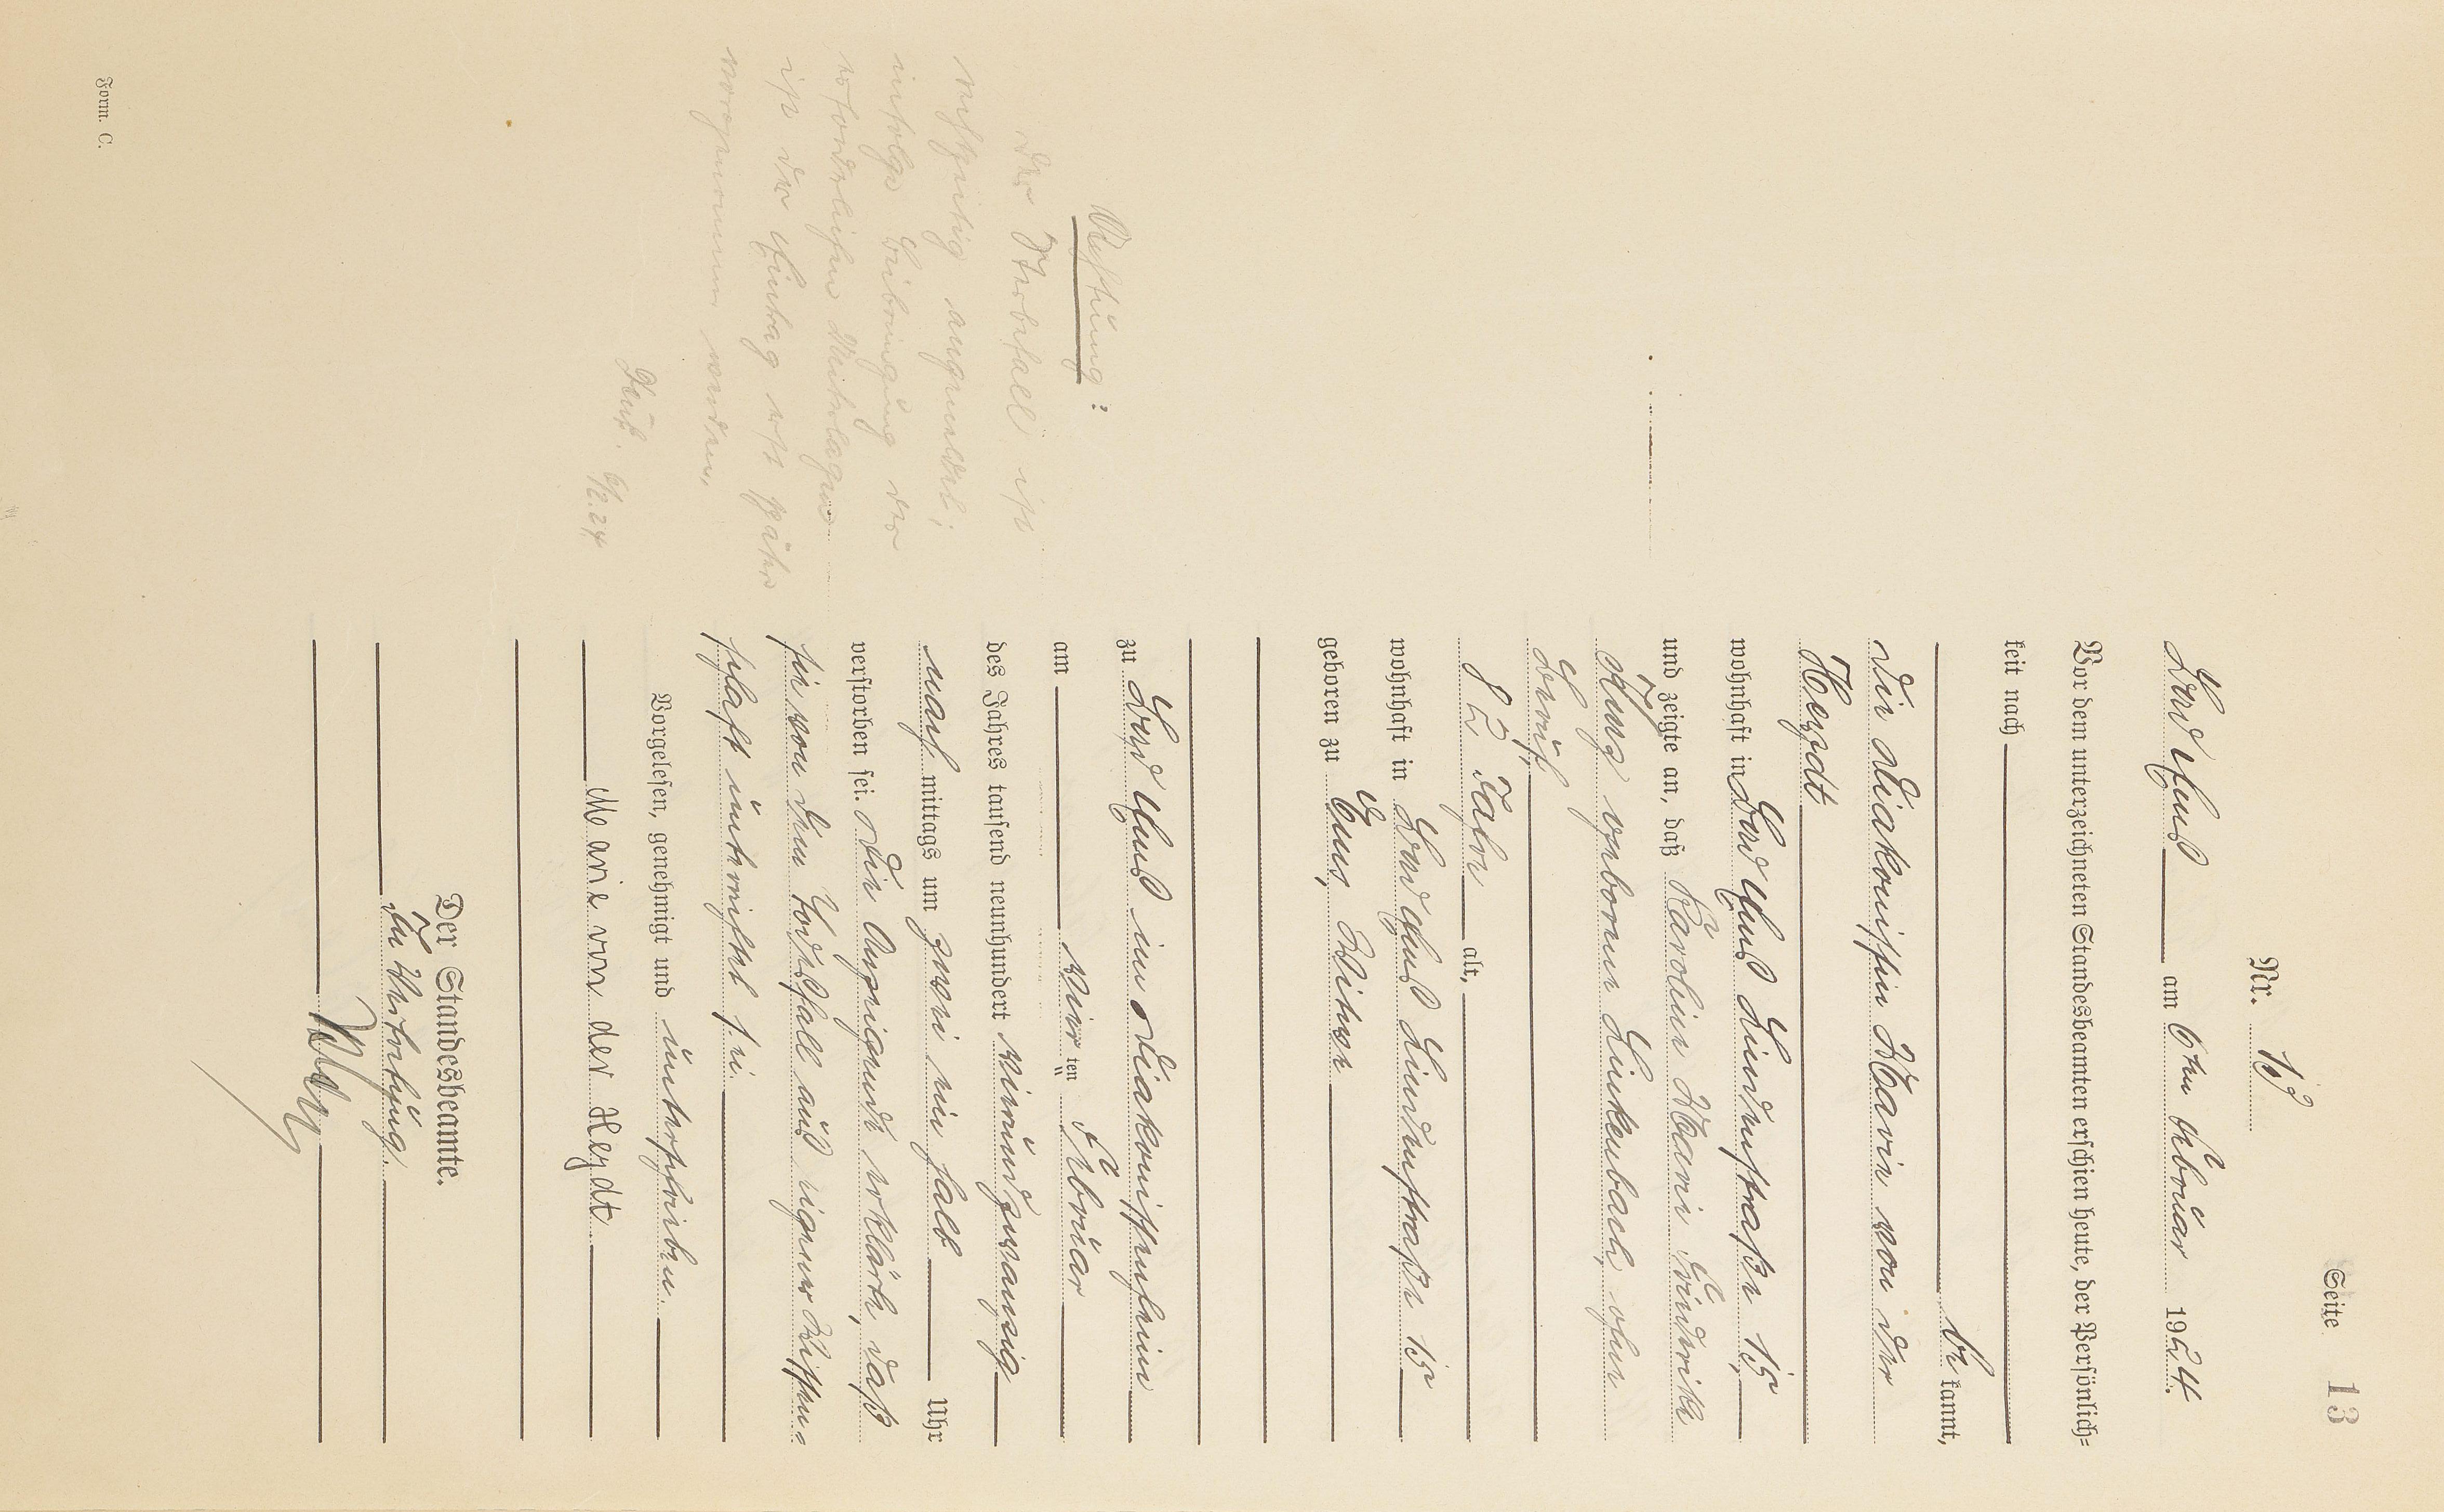 Seite 13
Nr.
Bad Ems am 6ten Februar 1924.
Vor dem unterzeichneten Standesbeamten erschien heute, der Persönlich=
keit nach
be kannt,
die Diakonissin Marie von der
Heydt
wohnhaft in Bad Ems Lindenstraße 15,
und zeigte an, daß Karoline Marie Friederike
Kunz geborene Linkenbach, ohne
Beruf,
82 Jahre alt,
wohnhaft in Bad Ems Lindenstraße 15
geboren zu Ems, Witwe
zu Bad Ems im Diakonissenheim
am vier ten Februar
des Jahres tausend neunhundert vierundzwanzig
nach mittags um zwei ein halb Uhr
verstorben sei. Die Anzeigende erklärte, daß
sie von dem Todesfall aus eigener Wissen=
schaft unterrichtet sei.
Vorgelesen, genehmigt und unterschrieben.
Marie von der Heydt
Der Standesbeamte.
In Vertretung.
Achtung:
Der Sterbefall ist
rechtzeitig angemeldet;
infolge Beibringung der
erforderlichen Unterlagen
ist der Eintrag erst später
vorgenommen worden.
6/2.24
Form. C.